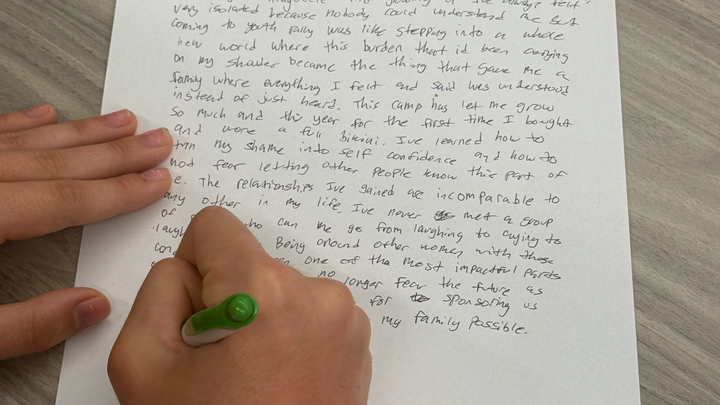 very isolated because nobody could understand me but
coming to youth rally was like stepping into a whole
new world where this burden that id been carrying
on my shoulder became the thing that gave me a
family where everything I felt and said was understood
instead of just heard. This camp has let me grow
so much and this year for the first time I bought
and wore a full bikini. I've learned how to
turn my shame into self confidence and how to
not fear letting other people know this part of
e. The relationships I've gained are incomparable to
any other in my life. I've never met a group
of who can me go from laughing to crying to
laugh Being around other women with these
con one of tha most impactful parts
no longer fear the future as
for sponsoring us
my family possible.